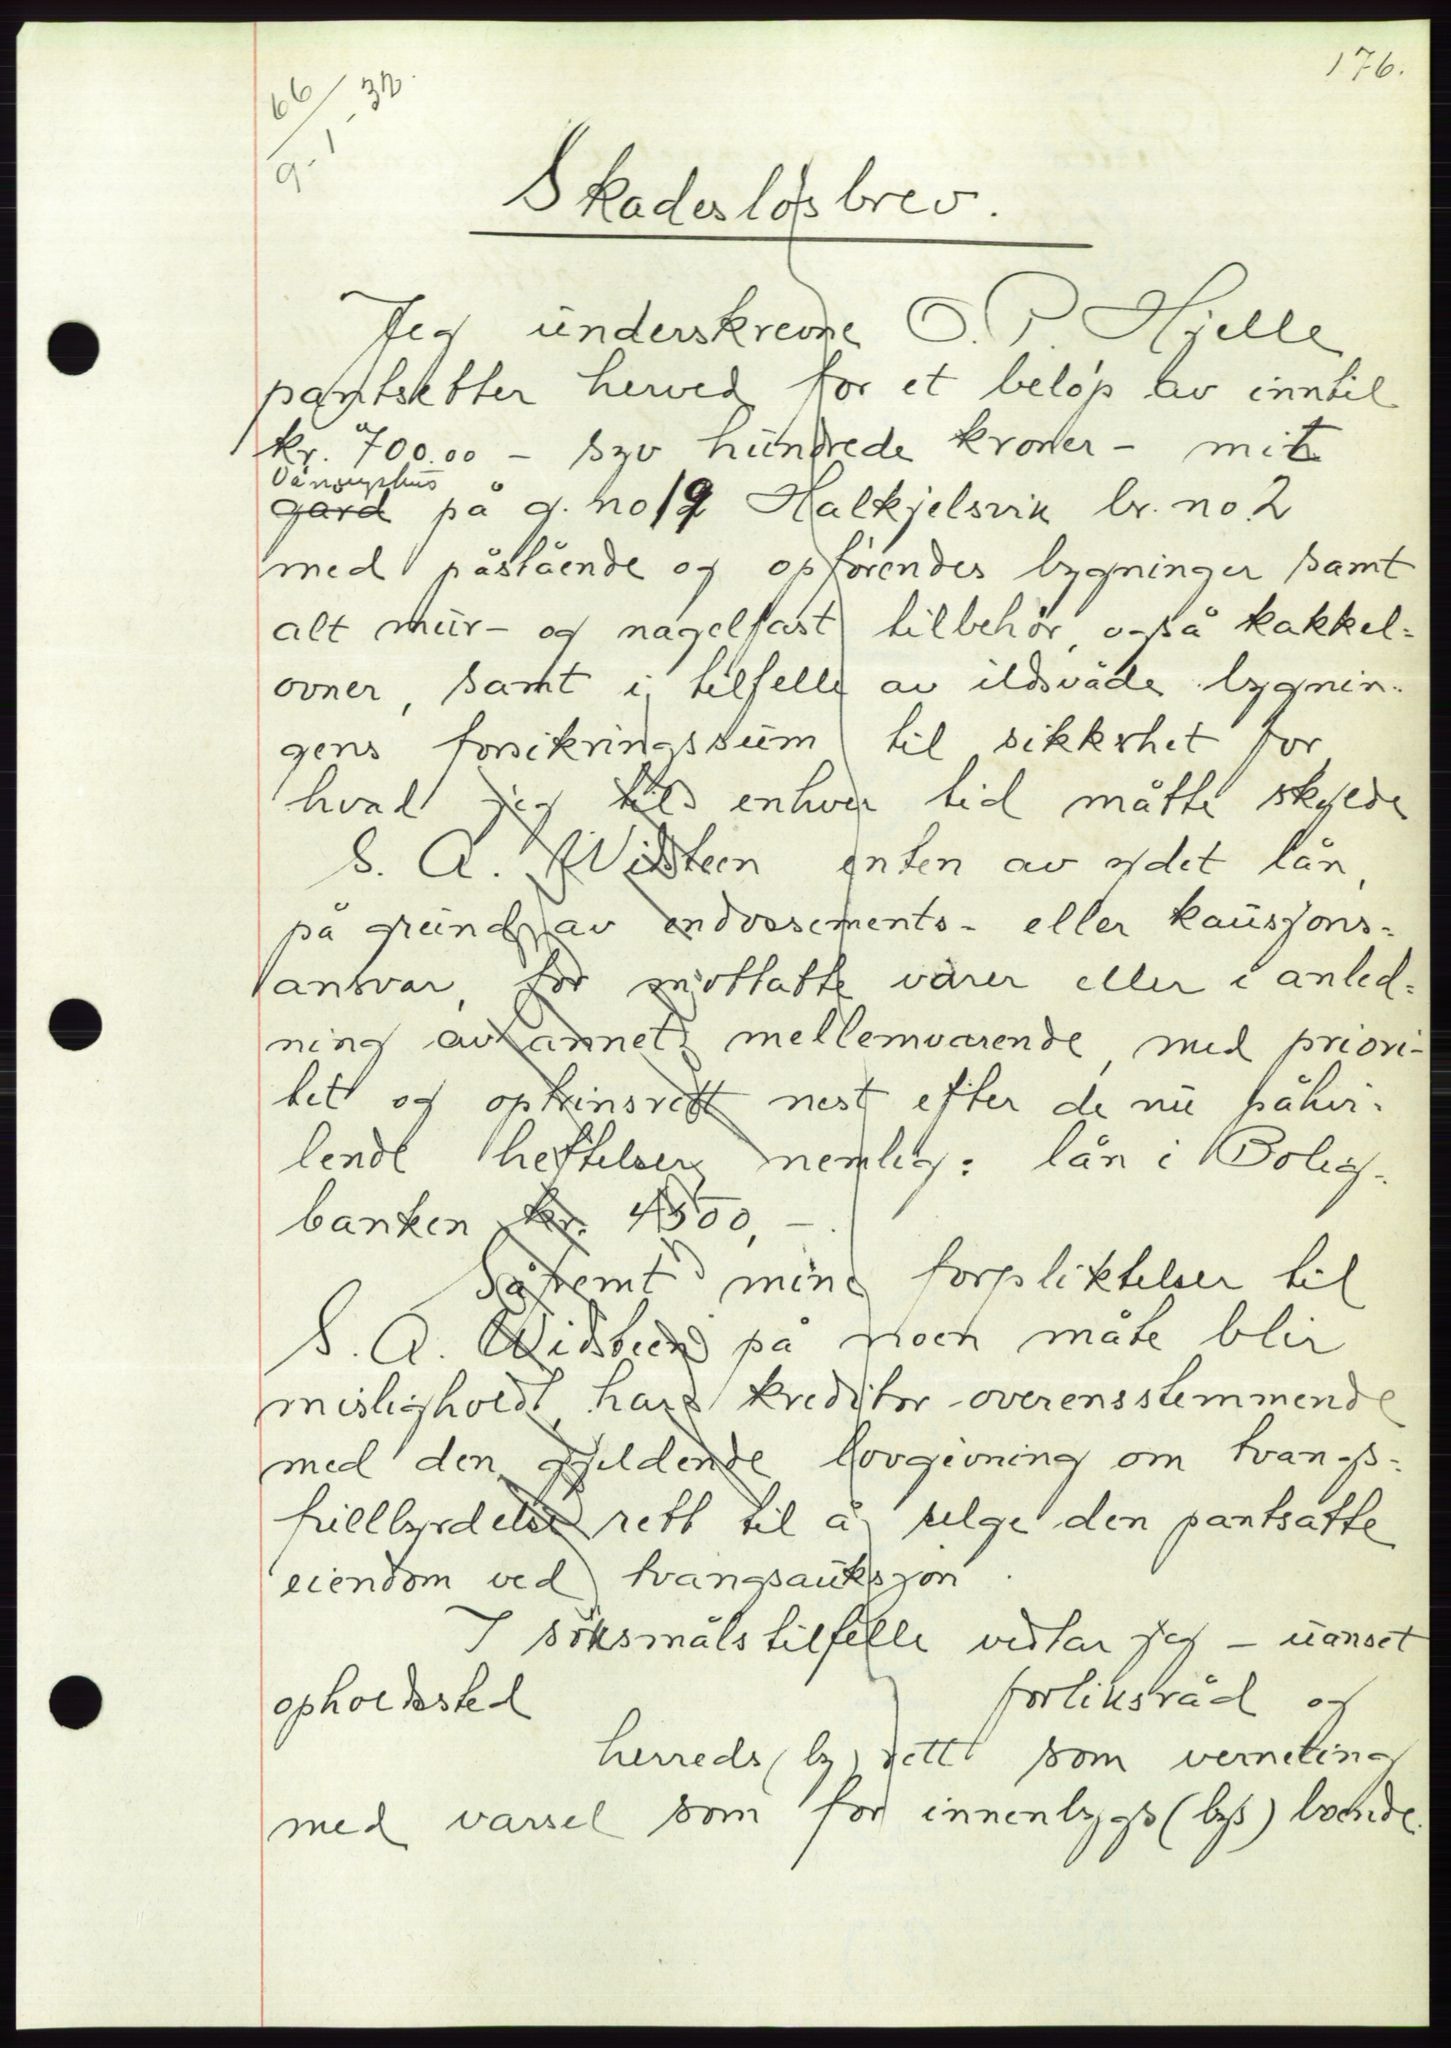 176.
66
9-1-32.
Skadesløsbrev.
Jeg underskrevne O. P. Hjelle
pantsetter herved for et beløp av inntil
kr. 700.00 - syv hundrede kroner - mit
Våningshus
gard på g. no 19 Halkjelsvik br. no. 2
med påstående og opførendes bygninger samt
alt mur- og nagelfast tilbehør, også kakkel-
ovner, samt i tilfelle av ildsvåde bygnin-
gens forsikringssum til sikkerhet for
hvad jeg til enhver tid måtte skylde
S. A. Widsteen enten av ydet lån,
på grund av endossements- eller kausjons-
ansvar, for mottatte varer eller i anled-
ning av annet mellemværende, med priori-
tet og optrinsrett nest efter de nu påhvi-
lende heftelser nemlig: lån i Bolig-
banken kr. 4500,-.
Såfremt mine forpliktelser til
S. A. Widsteen på noen måte blir
misligholdt, har kreditor overensstemmende
med den gjeldende lovgivning om tvangs-
fullbyrdelse rett til å selge den pantsatte
eiendom ved tvangsauksjon.
I søksmålstilfelle vedtar jeg - uanset
opholdssted forliksråd og
herreds (by) rett som verneting
med varsel som for innenbygs (bys) boende.